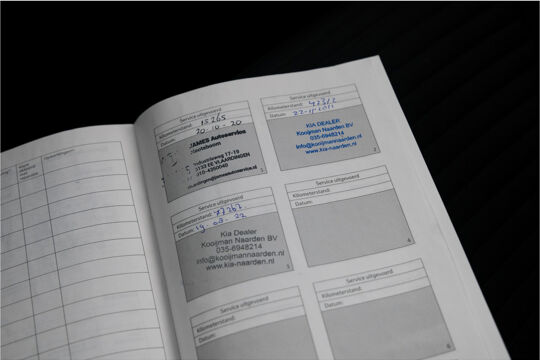 Service uitgevoerd
Kilometerstand: 15265
Datum: 20-10-20
JAMES Autoservice
Slootsboom
Industrieweg 17-19
3133 EE VLAARDINGEN
010-4350040
vlaardingen@jamesautoservice.nl
1
Service uitgevoerd
Kilometerstand:
Datum:
KIA DEALER
Kooijman Naarden BV
035-6948214
info@kooijmannaarden.nl
www.kia-naarden.nl
2
Service uitgevoerd
Kilometerstand:
Datum: 19-09-22
Kia Dealer
Kooijman Naarden BV
035-6948214
info@kooijmannaarden.nl
www.kia-naarden.nl
3
Service uitgevoerd
Kilometerstand:
Datum:
4
Service uitgevoerd
Kilometerstand:
Datum:
Service uitgevoerd
Kilometerstand:
Datum:
6